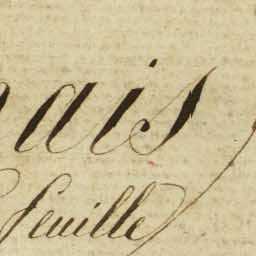 ais
feuille